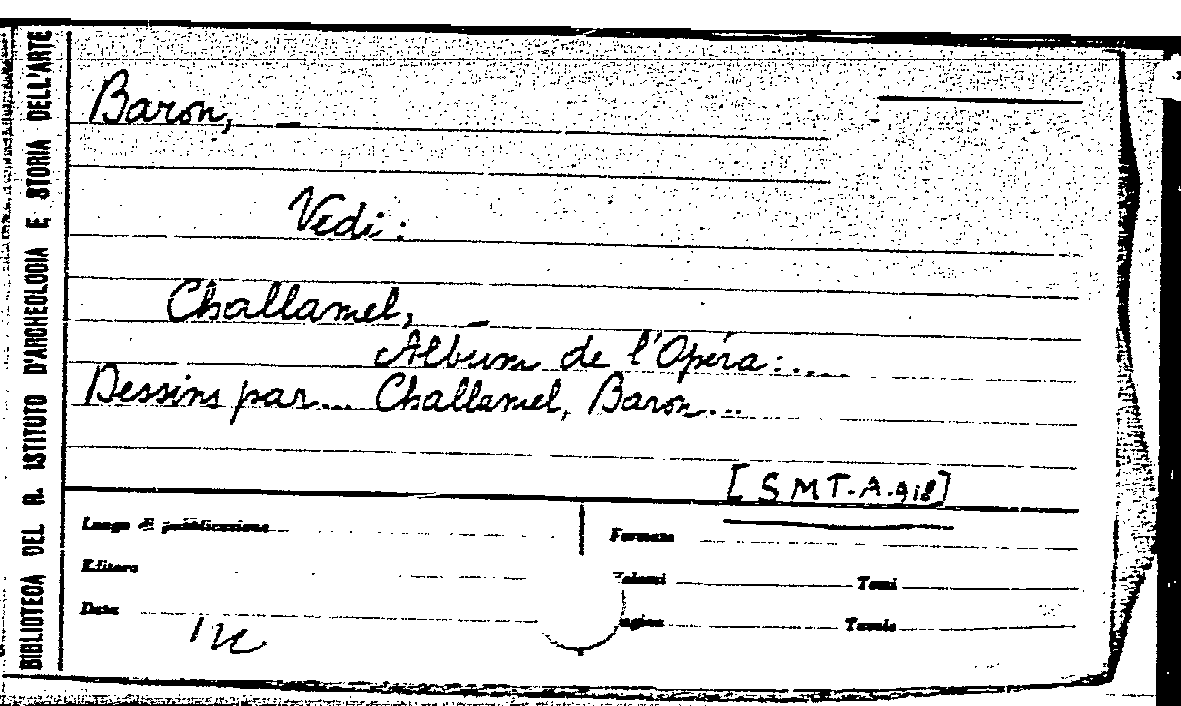 BIBLIOTECA DEL R. ISTITUTO D'ARCHEOLOGIA E STORIA DELL'ARTE
Baron, –
Vedi:
Challamel, –
Album de l'Opéra:....
Dessins par... Challamel, Baron...
[SMT-A.918]
Luogo di pubblicazione
Formato
Editore
Volumi Tomi
Data
Pagine Tavole